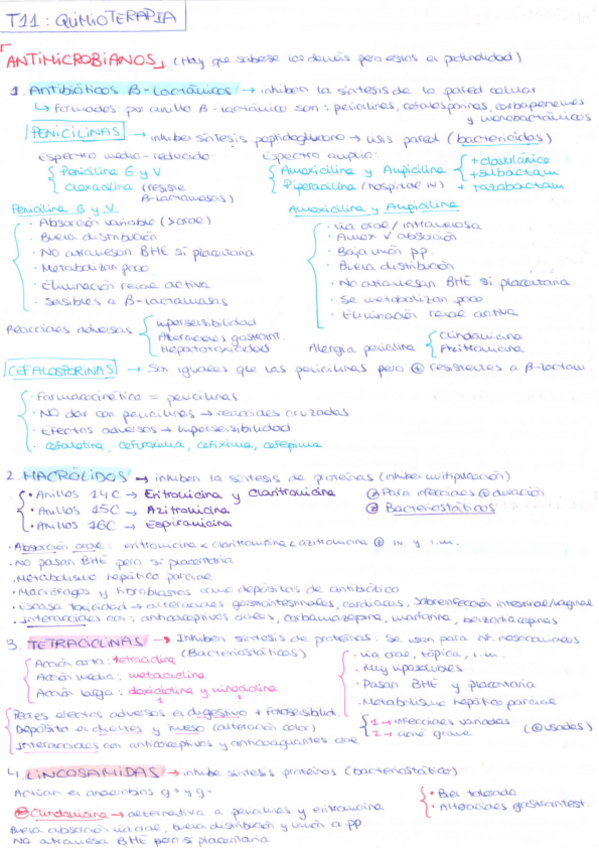 T11: QUIMIOTERAPIA
ANTIMICROBIANOS (Hay que saberse los demás pero estos en profundidad)
1. Antibióticos β-lactámicos → inhiben la síntesis de la pared celular
↳ Formados por anillo β-lactámico son: penicilinas, cefalosporinas, carbapenemes y monobactámicos
PENICILINAS → inhibe síntesis peptidoglucano → lisis pared (bactericidas)
Espectro medio-reducido:
Penicilina G y V
Cloxacilina (resiste β-lactamasas)
Espectro amplio:
Amoxicilina y Ampicilina
Piperacilina (hospital IV)
+clavulánico
+sulbactam
+ tazobactam
Penicilina G y V
· Absorción variable (>oral)
· Buena distribución
· NO atraviesan BHE sí placentaria
· Metabolizan poco
· Eliminación renal activa
· Sensibles a β-lactamasas
Amoxicilina y Ampicilina
· vía oral / intravenosa
· Amox ✓ absorción
· Baja unión pp.
· Buena distribución
· No atraviesan BHE sí placentaria
· Se metabolizan poco
· Eliminación renal activa
Reacciones adversas
Hipersensibilidad
Alteraciones gastroint.
Hepatotoxicidad
Alergia penicilina
Clindamicina
Azitromicina
CEFALOSPORINAS → Son iguales que las penicilinas pero ⊕ resistentes a β-lactam.
· Farmacocinética = penicilinas
· NO dar con penicilinas → reacciones cruzadas
· Efectos adversos → hipersensibilidad
· cefalotina, cefuroxima, cefixima, cefepima
2. MACRÓLIDOS → inhiben la síntesis de proteínas (inhibe multiplicación)
· Anillos 14C → Eritromicina y Claritromicina
· Anillos 15C → Azitromicina
· Anillos 16C → Espiramicina
Para infecciones ⊕ duración
Bacteriostáticos
· Absorción oral: eritromicina < claritromicina < azitromicina ⊕ iv. y i.m.
· No pasan BHE pero sí placentaria
· Metabolismo hepático parcial
· Macrófagos y fibroblastos como depósitos de antibiótico
· Escasa toxicidad → alteraciones gastrointestinales, cardíacas, sobreinfección intestinal/vaginal
· Interacciones con: anticonceptivos orales, carbamazepina, warfarina, benzodiacepinas
3. TETRACICLINAS → Inhiben síntesis de proteínas. Se usan para inf. nosocomiales
(Bacteriostáticos)
Acción corta: tetraciclina
Acción media: metaciclina
Acción larga: doxiciclina y minociclina
1 2
· vía oral, tópica, i.m.
· Muy liposolubles
· Pasan BHE y placentaria
· Metabolismo hepático parcial
Peores efectos adversos en digestivo + fotosensibilid.
Depósito en dientes y hueso (alteración color)
Interacciones con anticonceptivos y anticoagulantes oral
1 → infecciones variadas
2 → acné grave
(⊕ usadas)
4. LINCOSAMIDAS → inhibe síntesis proteínas (bacteriostático)
Actúan en anaerobios g+ y g-
Clindamicina → alternativa a penicilinas y eritromicina
Buena absorción vía oral, buena distribución y unión a pp.
NO atraviesa BHE pero sí placentaria
· Bien tolerado
· Alteraciones gastrointest.